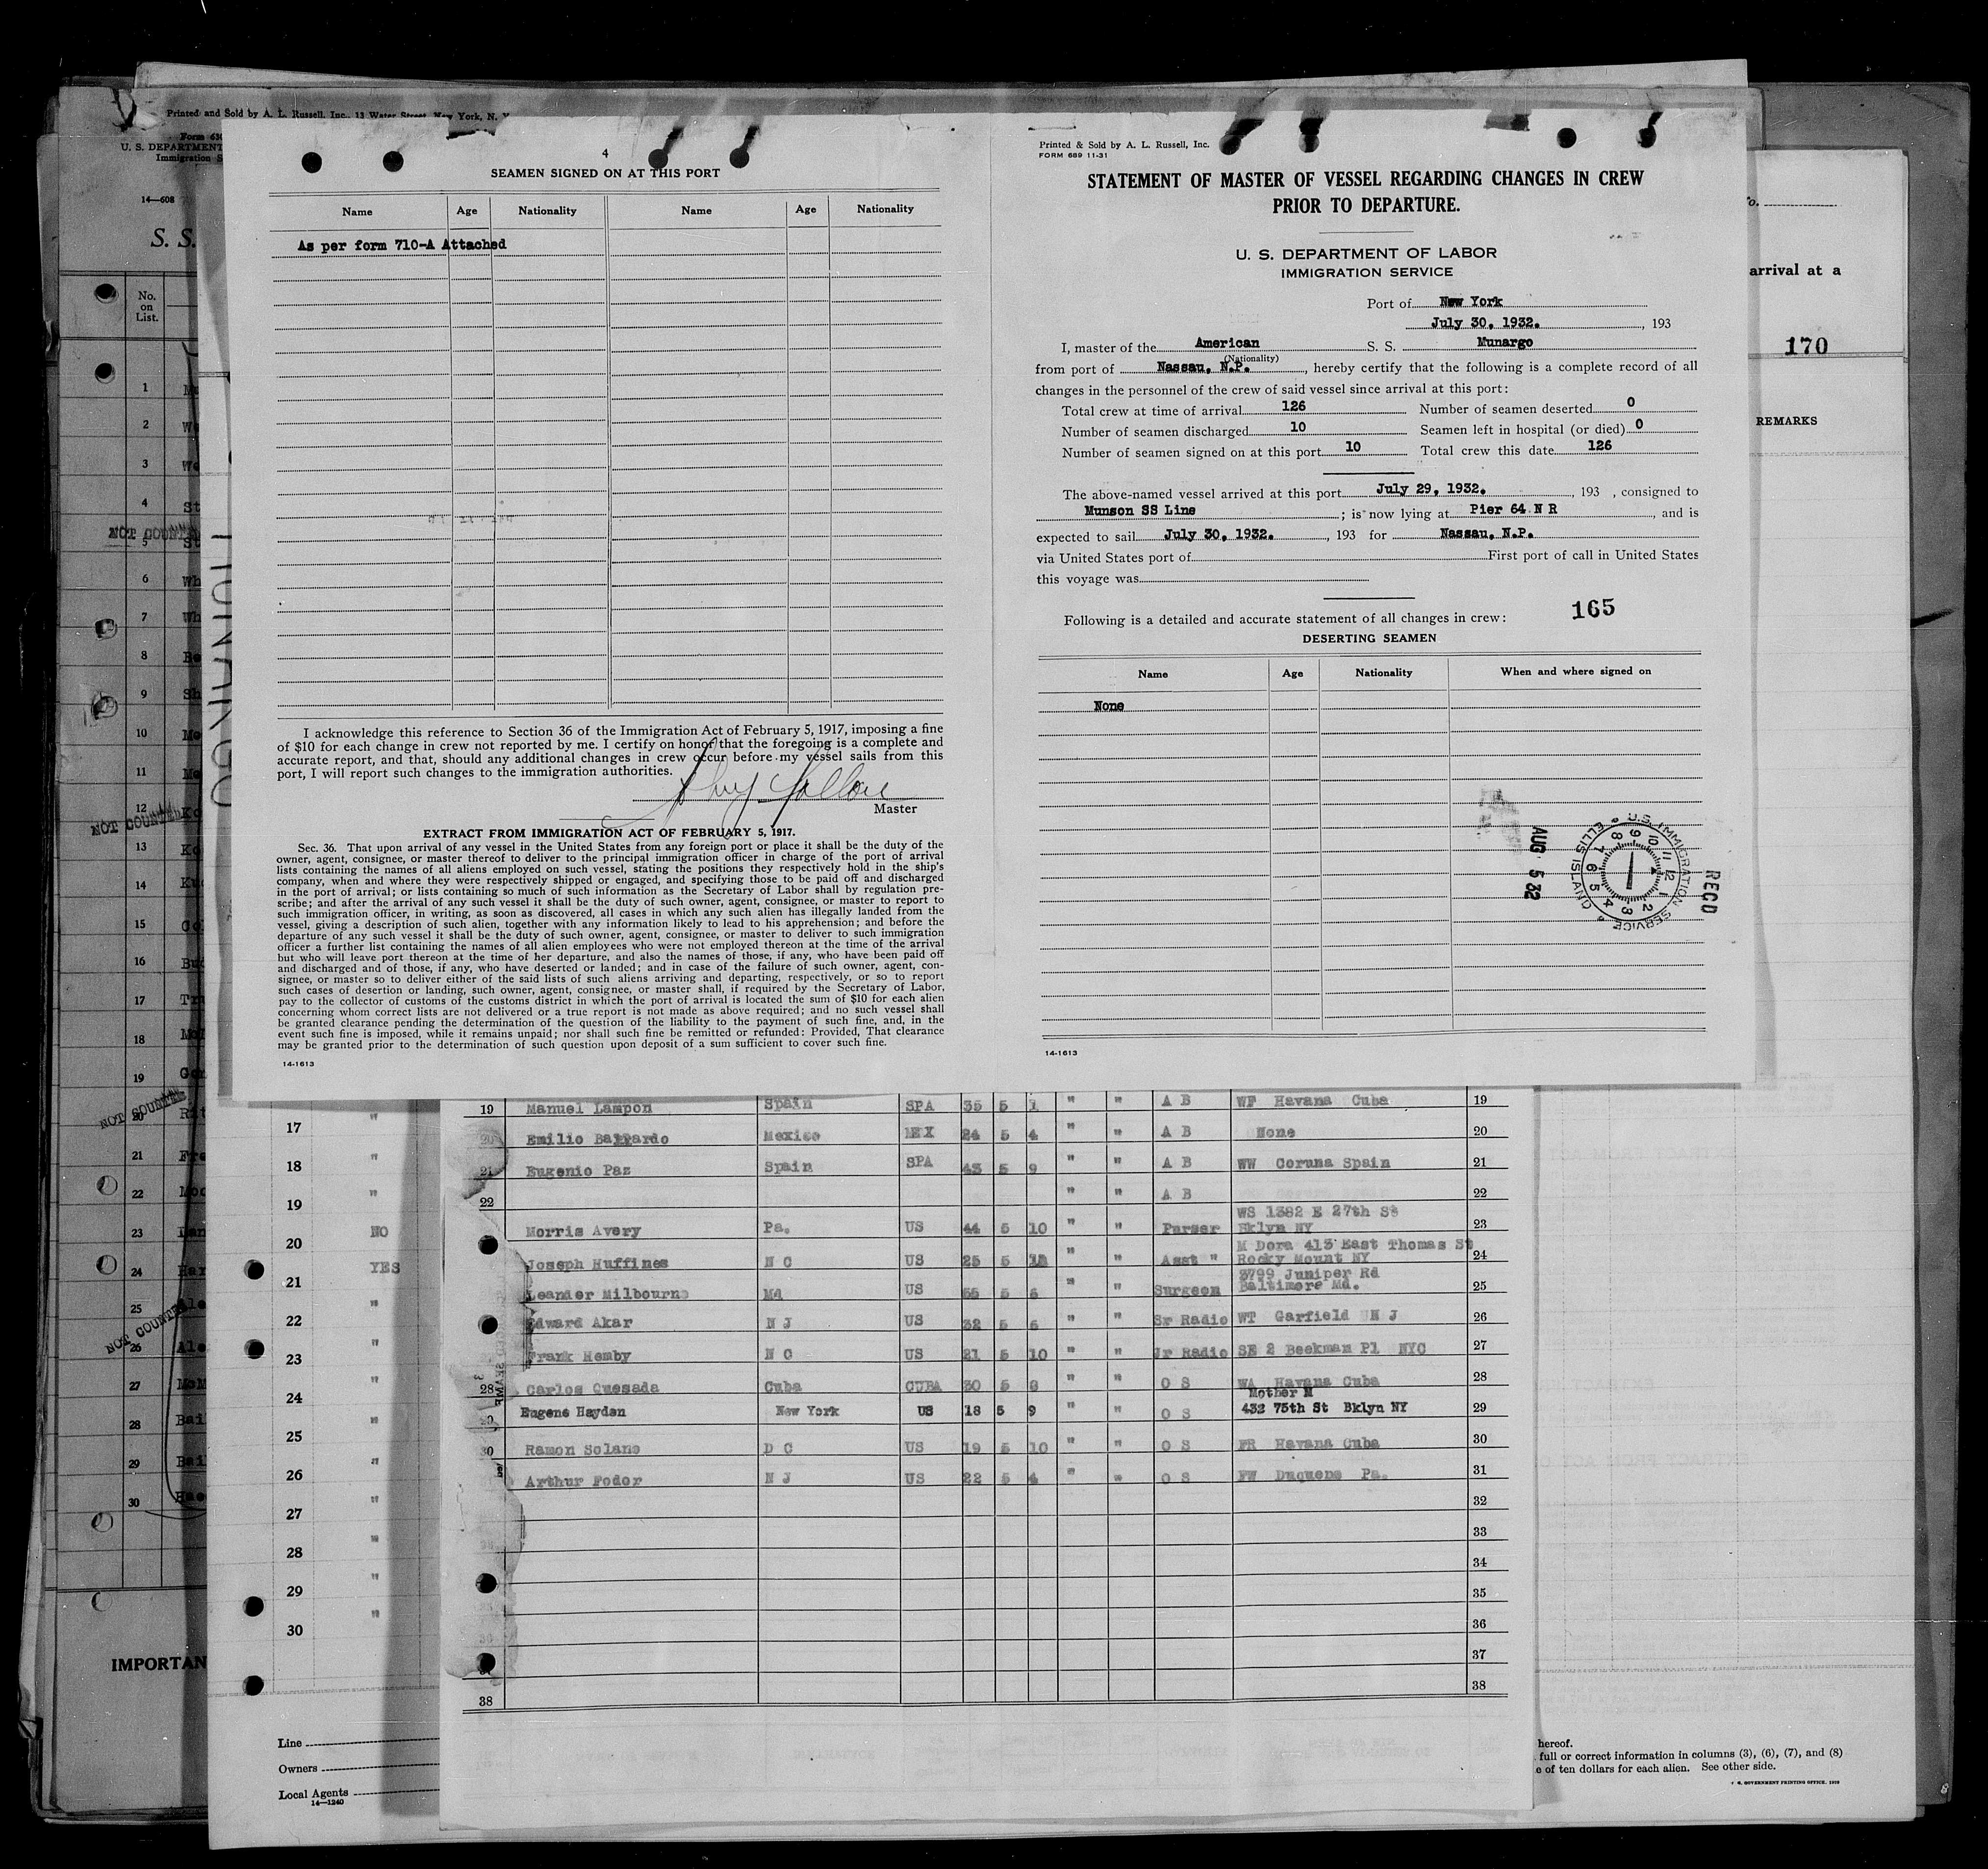 Printed and Sold by A. L. Russell, Inc., 13 Water Street, New York, N. Y.
U. S. DEPARTMENT
Immigration S
14—608
S. S.
No.
on
List.
1
2
3
4
NOT COUNTED
5
6
7
8
9
10
11
12
NOT COUNTED
13
14
15
16
17
18
19
NOT COUNTED
20
21
22
23
24
25
NOT COUNTED
26
27
28
29
30
IMPORTAN
4
SEAMEN SIGNED ON AT THIS PORT
Name Age Nationality Name Age Nationality
As per form 710-A Attached
I acknowledge this reference to Section 36 of the Immigration Act of February 5, 1917, imposing a fine
of $10 for each change in crew not reported by me. I certify on honor that the foregoing is a complete and
accurate report, and that, should any additional changes in crew occur before my vessel sails from this
port, I will report such changes to the immigration authorities.
Master
EXTRACT FROM IMMIGRATION ACT OF FEBRUARY 5, 1917.
Sec. 36. That upon arrival of any vessel in the United States from any foreign port or place it shall be the duty of the
owner, agent, consignee, or master thereof to deliver to the principal immigration officer in charge of the port of arrival
lists containing the names of all aliens employed on such vessel, stating the positions they respectively hold in the ship's
company, when and where they were respectively shipped or engaged, and specifying those to be paid off and discharged
in the port of arrival; or lists containing so much of such information as the Secretary of Labor shall by regulation pre-
scribe; and after the arrival of any such vessel it shall be the duty of such owner, agent, consignee, or master to report to
such immigration officer, in writing, as soon as discovered, all cases in which any such alien has illegally landed from the
vessel, giving a description of such alien, together with any information likely to lead to his apprehension; and before the
departure of any such vessel it shall be the duty of such owner, agent, consignee, or master to deliver to such immigration
officer a further list containing the names of all alien employees who were not employed thereon at the time of the arrival
but who will leave port thereon at the time of her departure, and also the names of those, if any, who have been paid off
and discharged and of those, if any, who have deserted or landed; and in case of the failure of such owner, agent, con-
signee, or master so to deliver either of the said lists of such aliens arriving and departing, respectively, or so to report
such cases of desertion or landing, such owner, agent, consignee, or master shall, if required by the Secretary of Labor,
pay to the collector of customs of the customs district in which the port of arrival is located the sum of $10 for each alien
concerning whom correct lists are not delivered or a true report is not made as above required; and no such vessel shall
be granted clearance pending the determination of the question of the liability to the payment of such fine, and, in the
event such fine is imposed, while it remains unpaid; nor shall such fine be remitted or refunded: Provided, That clearance
may be granted prior to the determination of such question upon deposit of a sum sufficient to cover such fine.
14-1613
Printed & Sold by A. L. Russell, Inc.
FORM 689 11-31
STATEMENT OF MASTER OF VESSEL REGARDING CHANGES IN CREW
PRIOR TO DEPARTURE.
U. S. DEPARTMENT OF LABOR
IMMIGRATION SERVICE
Port of New York
July 30, 1932. , 193
I, master of the American S. S. Munargo
(Nationality)
from port of Nassau, N.P. , hereby certify that the following is a complete record of all
changes in the personnel of the crew of said vessel since arrival at this port:
Total crew at time of arrival 126 Number of seamen deserted 0
Number of seamen discharged 10 Seamen left in hospital (or died) 0
Number of seamen signed on at this port 10 Total crew this date 126
The above-named vessel arrived at this port July 29, 1932. , 193 , consigned to
Munson SS Line ; is now lying at Pier 64 N R , and is
expected to sail July 30, 1932. , 193 for Nassau, N.P.
via United States port of First port of call in United States
this voyage was
165
Following is a detailed and accurate statement of all changes in crew:
DESERTING SEAMEN
Name Age Nationality When and where signed on
None
AUG 5 32
U.S. IMMIGRATION SERVICE
ELLIS ISLAND
RECD
14-1613
arrival at a
170
REMARKS
17 "
18 "
19 "
20 NO
21 YES
22 "
23 "
24 "
25 "
26 "
27 "
28 "
29 "
30 "
Line
Owners
Local Agents
14—1240
19 Manuel Lampon Spain SPA 35 5 1 " " A B WF Havana Cuba 19
20 Emilio Mexico MEX 24 5 4 " " A B None 20
21 Eugenio Paz Spain SPA 43 5 9 " " A B WW Coruna Spain 21
22 " " A B 22
Morris Avery Pa. US 44 5 10 " " Purser WS 1382 E 27th St Bklyn NY 23
Joseph Huffines N C US 25 5 " " Asst " M Dora 413 East Thomas St Rocky Mount NY 24
Leander Milbourne Md US 55 5 6 " " Surgeon 3799 Juniper Rd Baltimore Md. 25
Edward Akar N J US 32 5 6 " " Sr Radio WT Garfield N J 26
Frank Hemby N C US 21 5 10 " " Jr Radio SE 2 Beekman Pl NYC 27
28 Carlos Quesada Cuba CUBA 30 5 " " O S WA Havana Cuba 28
29 Eugene Haydan New York US 18 5 9 " " O S Mother M 432 75th St Bklyn NY 29
30 Ramon Solano D C US 19 5 10 " " O S FR Havana Cuba 30
Arthur Fodor N J US 22 5 4 " " O S FW Duquene Pa. 31
32
33
34
35
36
37
38 38
hereof.
full or correct information in columns (3), (6), (7), and (8)
e of ten dollars for each alien. See other side.
GOVERNMENT PRINTING OFFICE